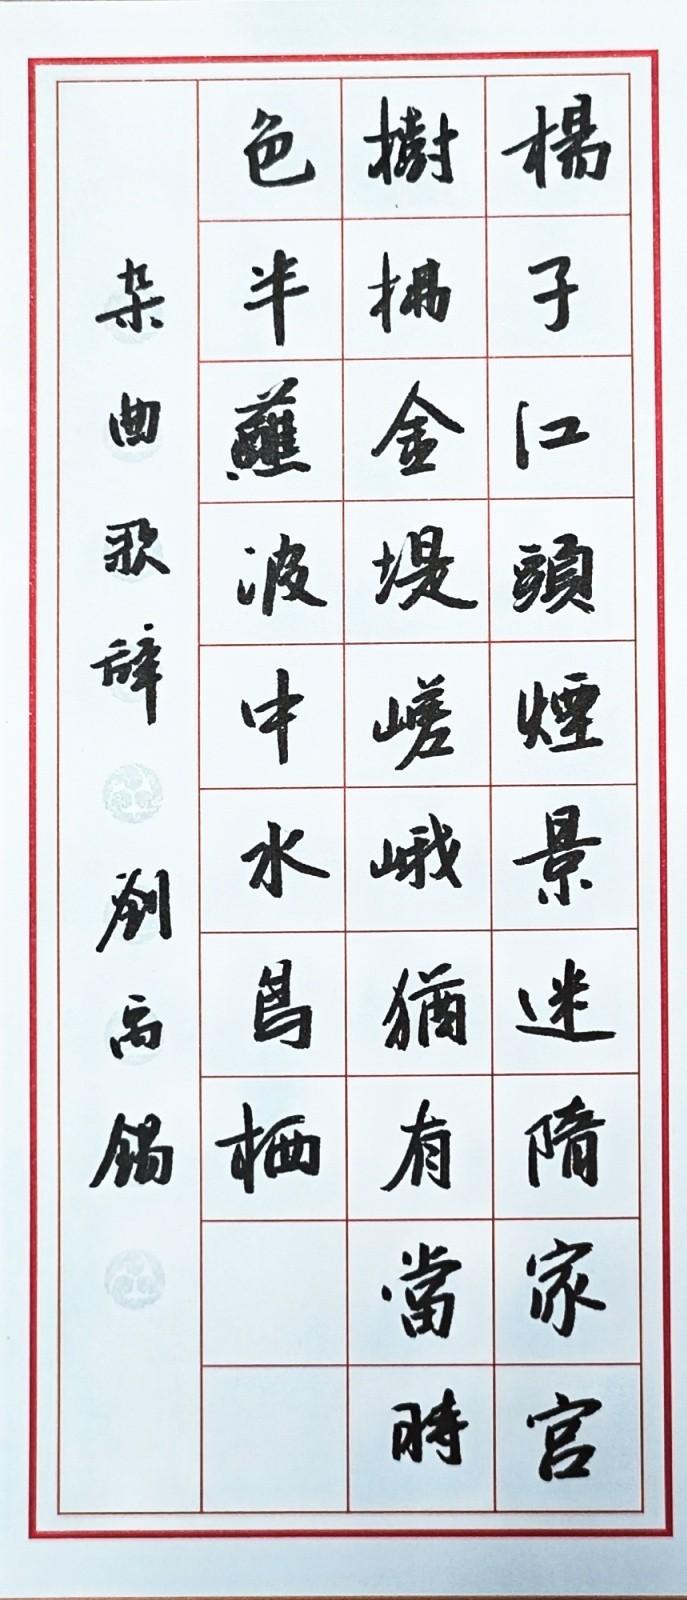 楊子江頭煙景迷隋家宮
樹拂金堤嵯峨猶有當時
色半蘸波中水鳥栖
杂曲歌辞 劉禹錫